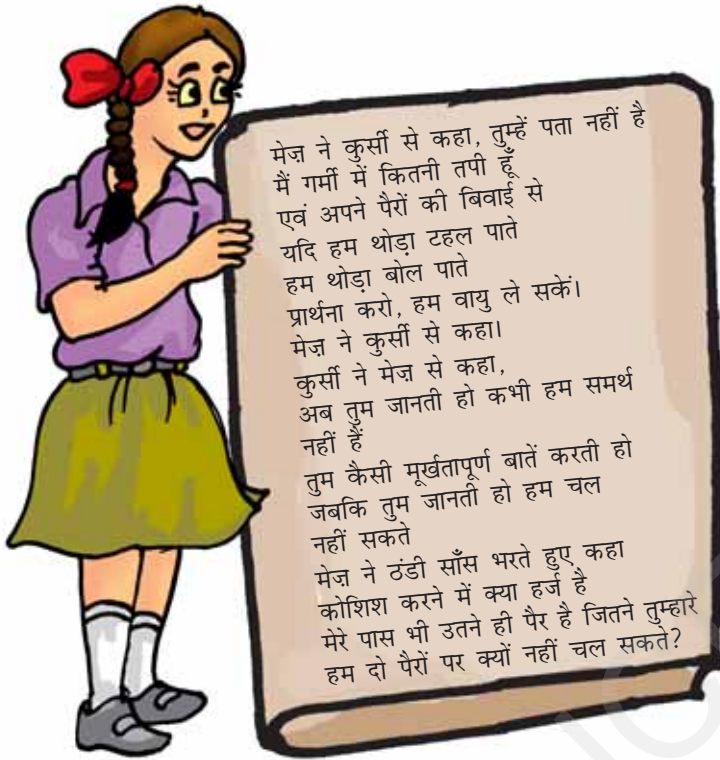 मेज़ ने कुर्सी से कहा, तुम्हें पता नहीं है
मैं गर्मी में कितनी तपी हूँ
एवं अपने पैरों की बिवाई से
यदि हम थोड़ा टहल पाते
हम थोड़ा बोल पाते
प्रार्थना करो, हम वायु ले सकें।
मेज़ ने कुर्सी से कहा।
कुर्सी ने मेज़ से कहा,
अब तुम जानती हो कभी हम समर्थ
नहीं हैं
तुम कैसी मूर्खतापूर्ण बातें करती हो
जबकि तुम जानती हो हम चल
नहीं सकते
मेज ने ठंडी साँस भरते हुए कहा
कोशिश करने में क्या हर्ज है
मेरे पास भी उतने ही पैर है जितने तुम्हारे
हम दो पैरों पर क्यों नहीं चल सकते?